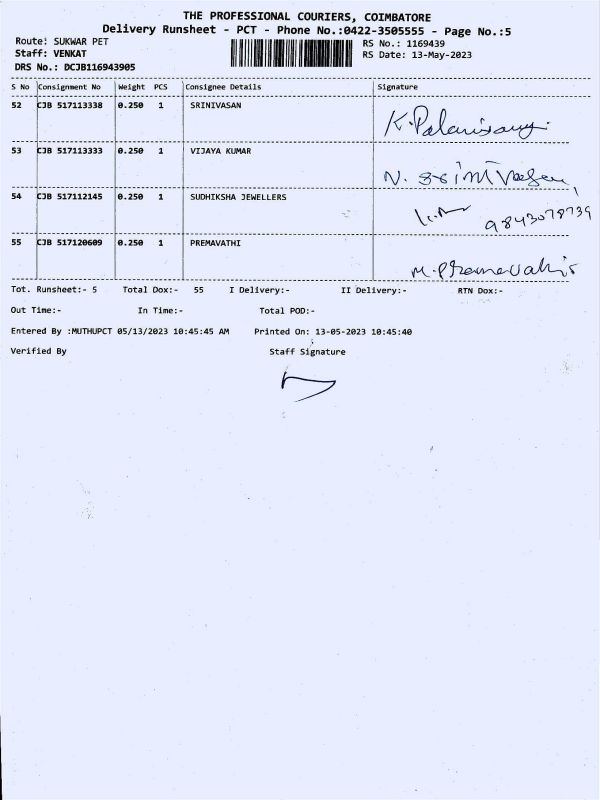 THE PROFESSIONAL COURIERS, COIMBATORE
Delivery Runsheet - PCT - Phone No.:0422-3505555 - Page No.:5
Route: SUKWAR PET RS No.: 1169439
Staff: VENKAT RS Date: 13-May-2023
DRS No.: DCJB116943905
S No Consignment No Weight PCS Consignee Details Signature
52 CJB 517113338 0.250 1 SRINIVASAN K. Palanisamy
53 CJB 517113333 0.250 1 VIJAYA KUMAR N.
54 CJB 517112145 0.250 1 SUDHIKSHA JEWELLERS 9843078739
55 CJB 517120609 0.250 1 PREMAVATHI M.
Tot. Runsheet:- 5 Total Dox:- 55 I Delivery:- II Delivery:- RTN Dox:-
Out Time:- In Time:- Total POD:-
Entered By :MUTHUPCT 05/13/2023 10:45:45 AM Printed On: 13-05-2023 10:45:40
Verified By Staff Signature